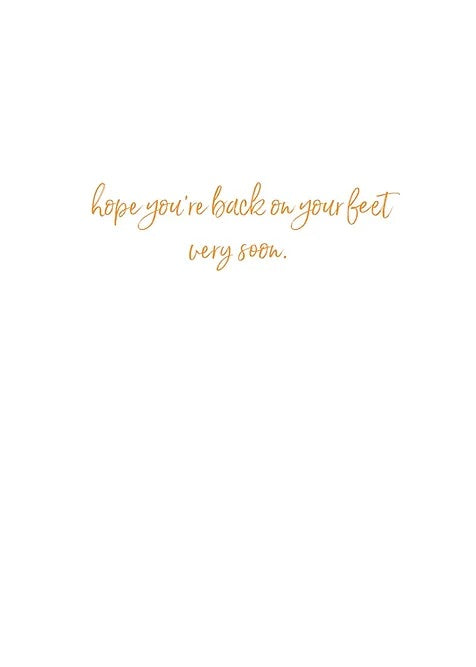 hope you're back on your feet
very soon.